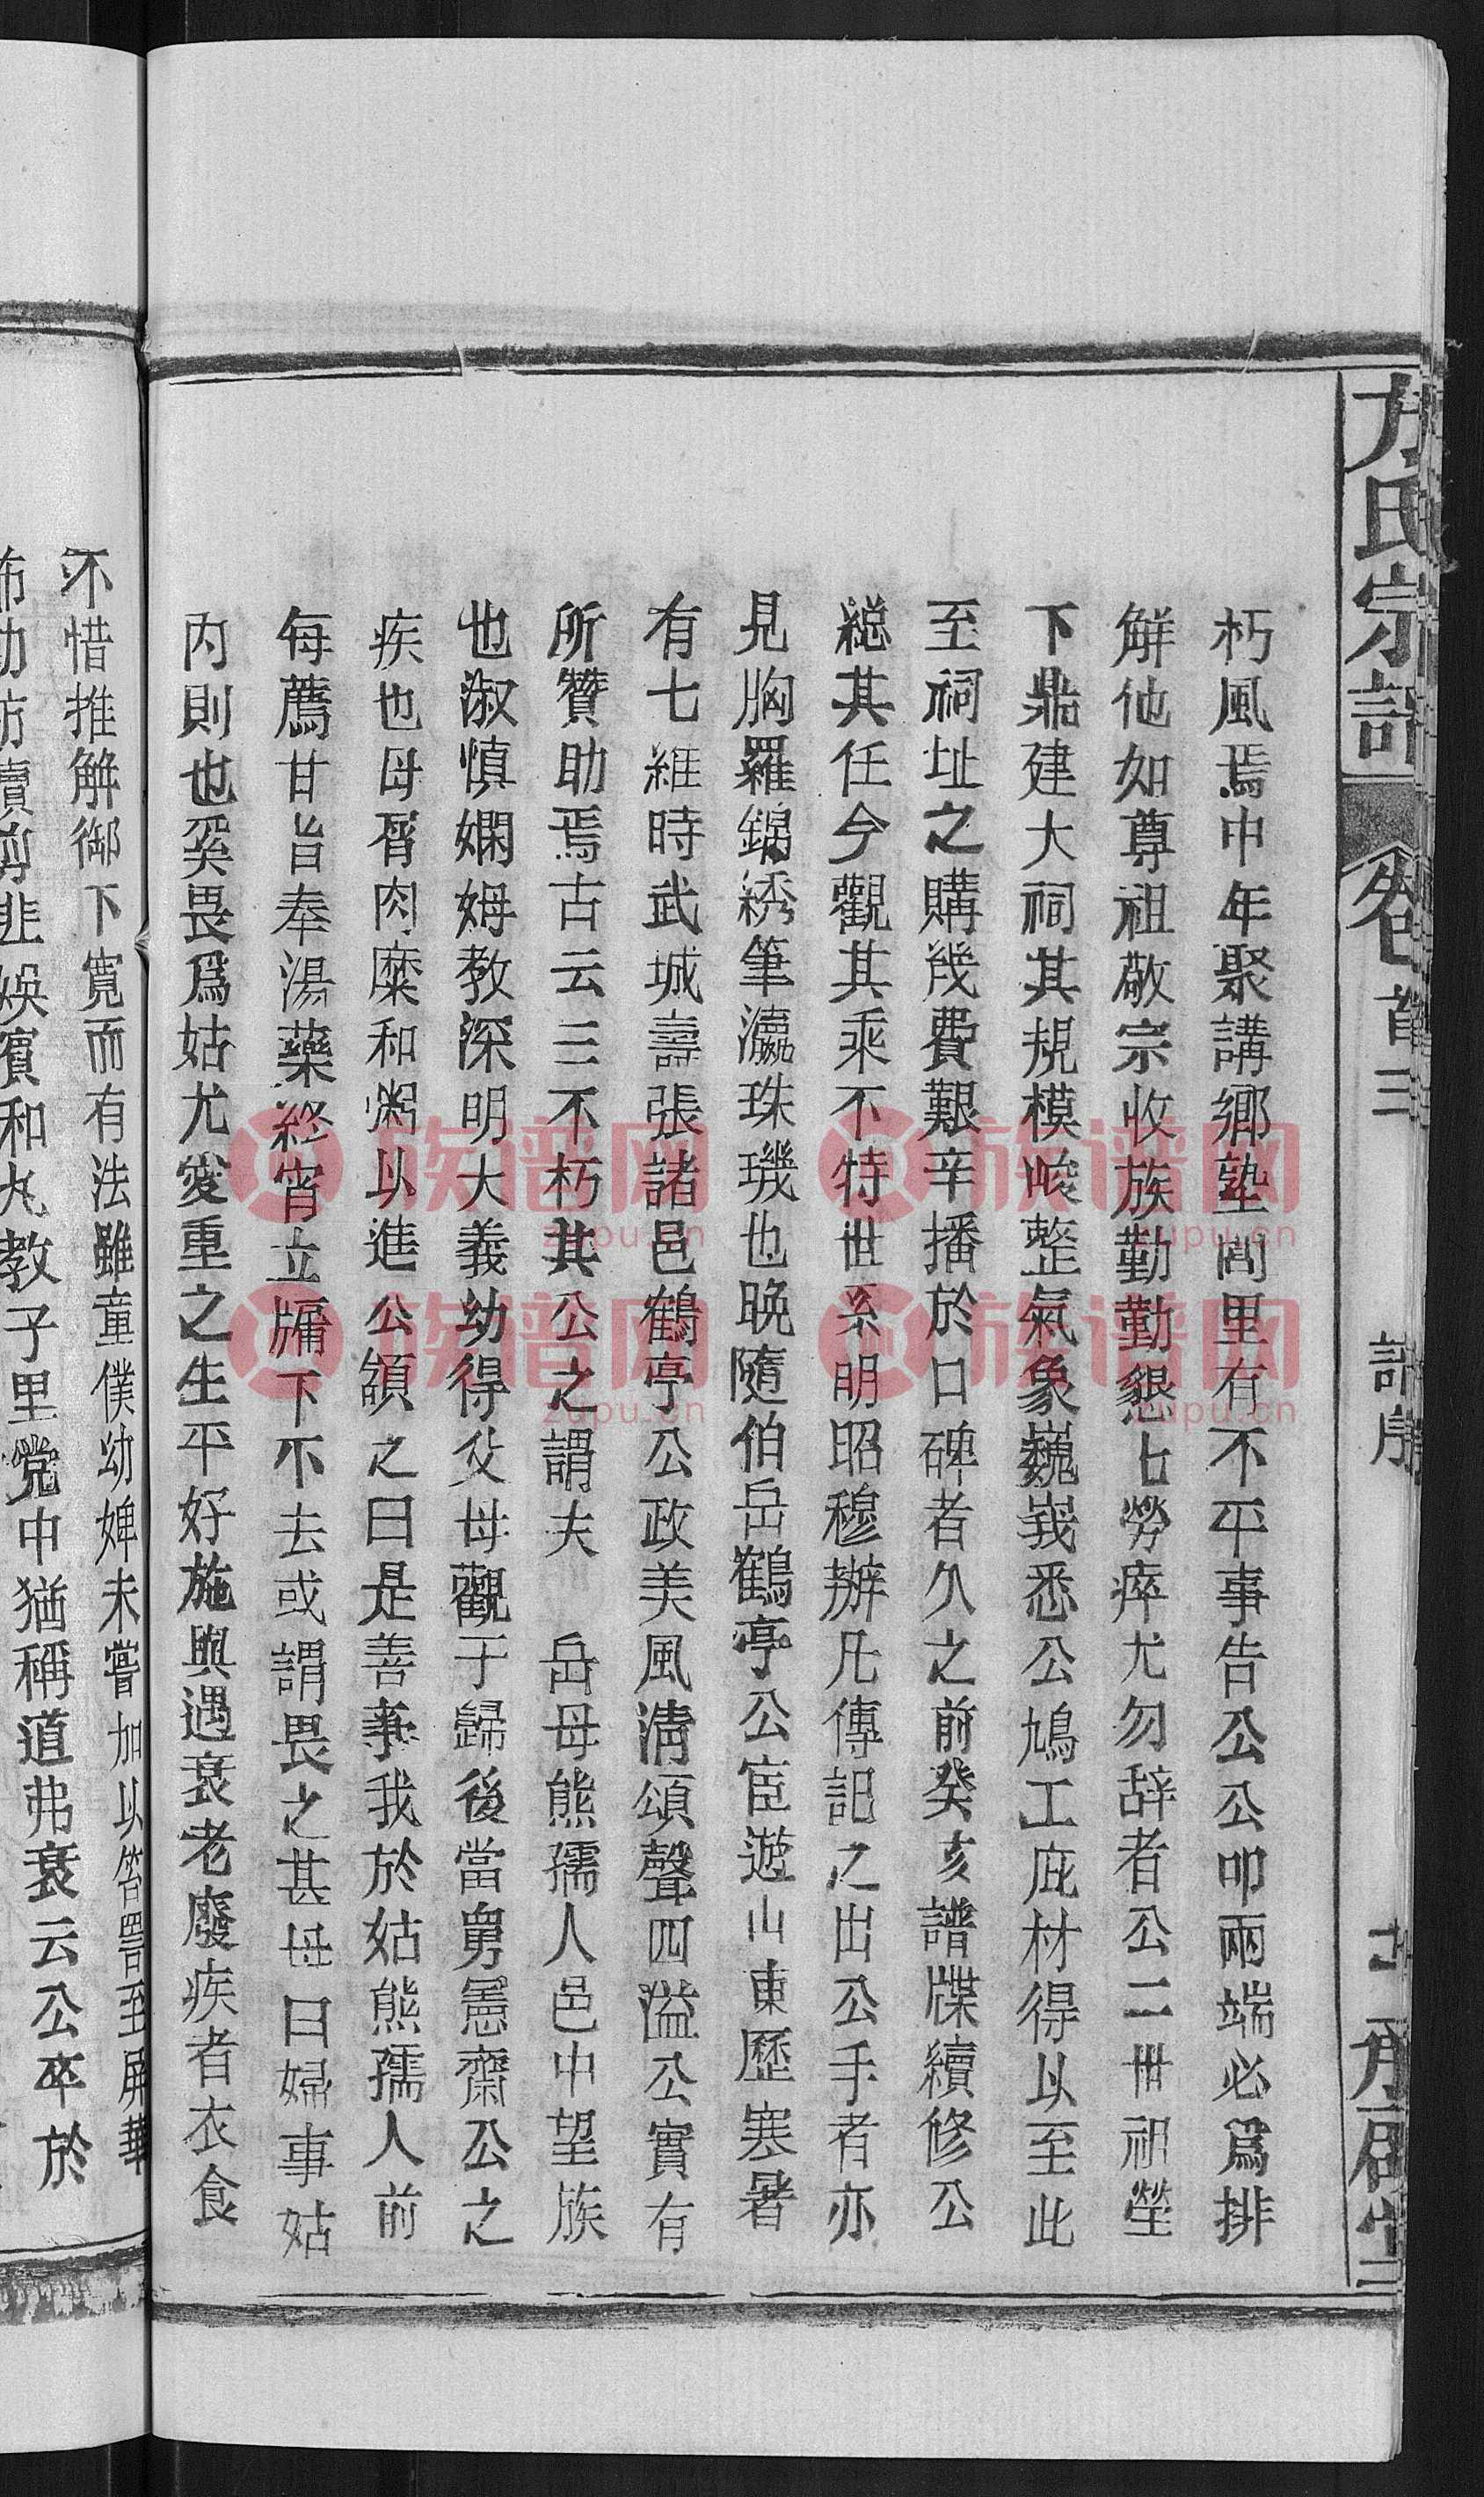 方氏宗譜
卷首三
譜序
朽風焉中年聚講鄉塾閭里有不平事告公公叩兩端必爲排
解他如尊祖敬宗收族勤勤懇七勞瘁尤勿辞者公二世祖塋
下鼎建大祠其規模峻整氣象巍峩悉公鳩工庇材得以至此
至祠址之購幾費艱辛播於口碑者久之前癸亥譜牒續修公
総其任今觀其乘不特世系明昭穆辦凡傳記之出公手者亦
見胸羅錦綉筆瀛珠璣也晚隨伯岳鶴亭公宦遊山東歷寒暑
有七維時武城壽張諸邑鶴亭公政美風清頌聲四溢公實有
所贊助焉古云三不朽其公之謂夫　岳母熊孺人邑中望族
也淑慎嫻姆教深明大義幼得父母觀于歸後當舅憲齋公之
疾也母胥肉糜和粥以進公頷之曰是善事我於姑熊孺人前
每薦甘旨奉湯藥終宵立牖下不去或謂畏之甚母曰婦事姑
內則也奚畏爲姑尤愛重之生平好施與遇衰老廢疾者衣食
不惜推解御下寬而有法雖童僕幼婢未嘗加以笞詈至屏華
佈助紡績剪韭娛賓和丸教子里党中猶稱道弗衰云公卒於
族谱网
zupu.cn
族谱网
zupu.cn
族谱网
zupu.cn
族谱网
zupu.cn